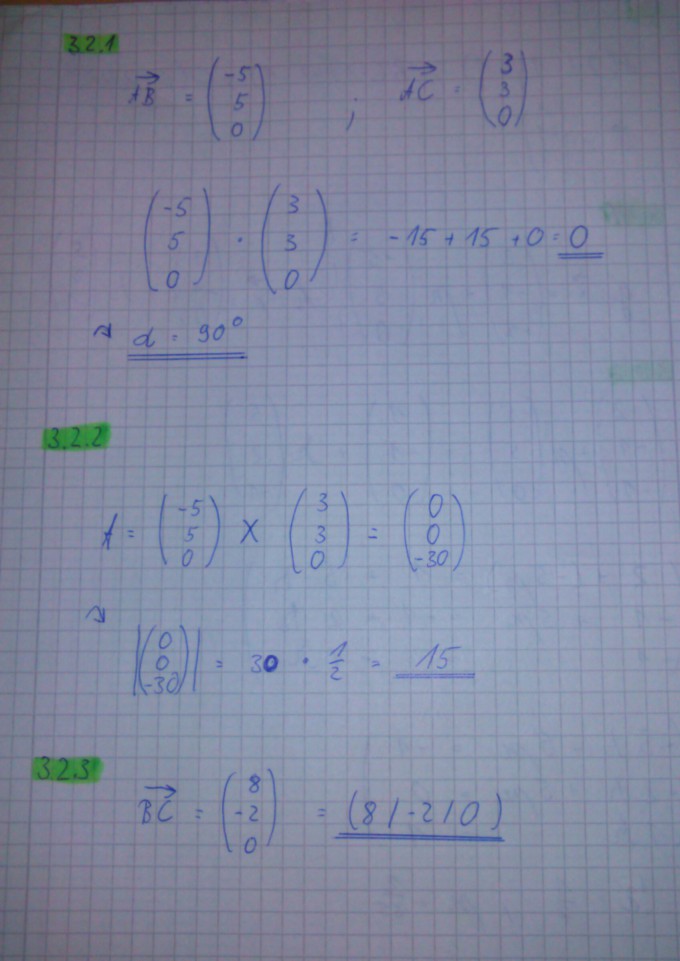 3.2.1
AB→ = (-5 5 0) ; AC→ = (3 3 0)
(-5 5 0) · (3 3 0) = -15 + 15 + 0 = 0
↷ α = 90°
3.2.2
A = (-5 5 0) X (3 3 0) = (0 0 -30)
↷
|(0 0 -30)| = 30 · 1/2 = 15
3.2.3
BC→ = (8 -2 0) = (8 / -2 / 0)